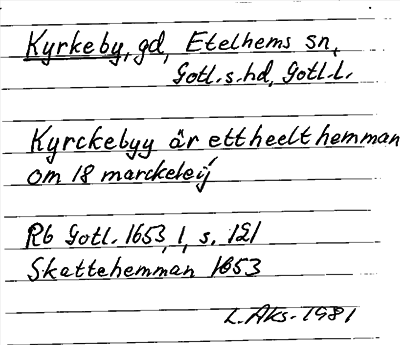 Kyrkeby, gd, Etelhems sn,
Gotl. s. hd, Gotl. l.
Kyrckebyy är ett heelt hemman
om 18 marckeleij
Rb Gotl. 1653, 1, s. 121
Skattehemman 1653
L. Aks. 1981